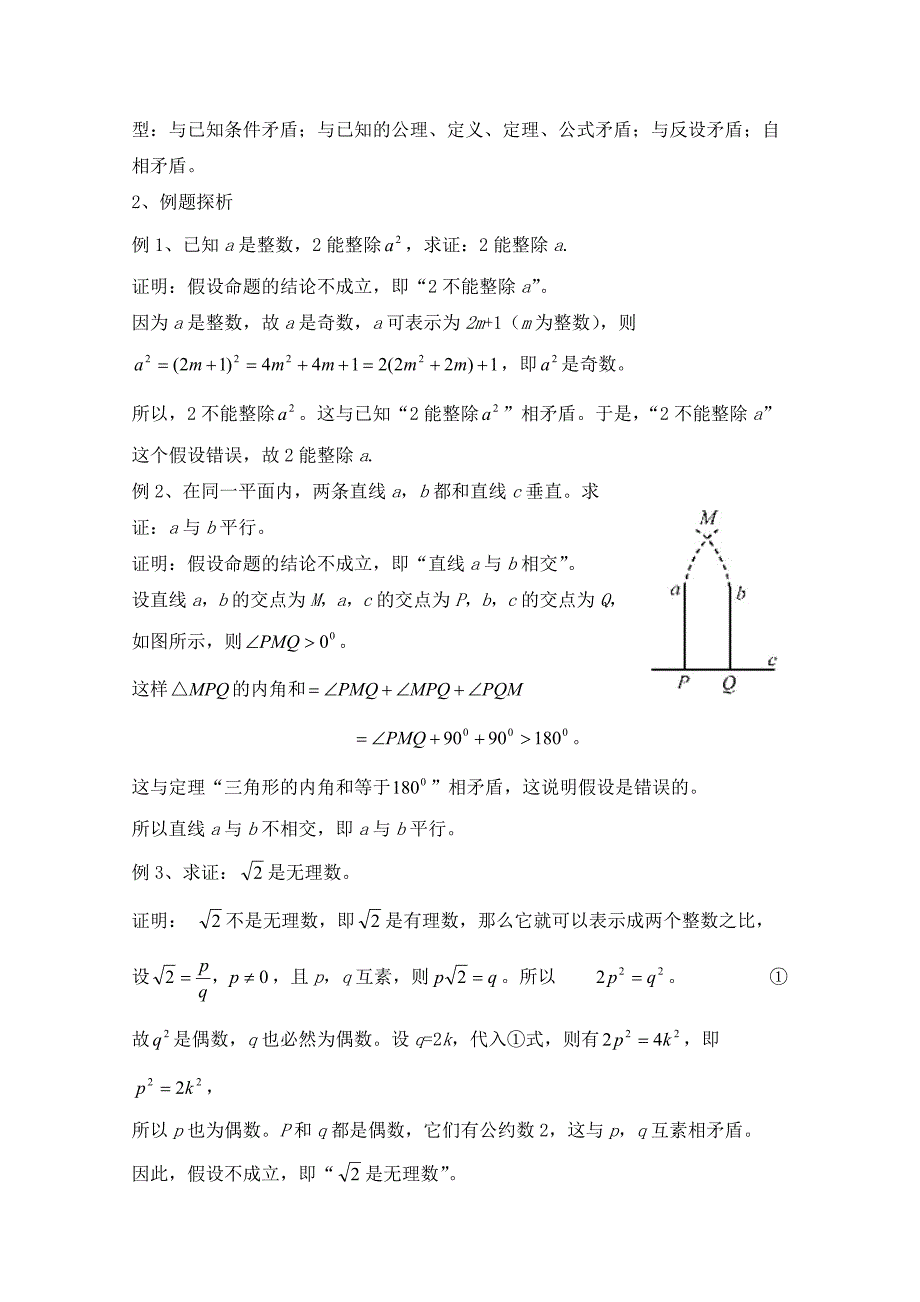 型：与已知条件矛盾；与已知的公理、定义、定理、公式矛盾；与反设矛盾；自
相矛盾。
2、例题探析
例1、已知a是整数，2能整除a²，求证：2能整除a.
证明：假设命题的结论不成立，即“2不能整除a”。
因为a是整数，故a是奇数，a可表示为2m+1（m为整数），则
a² = (2m+1)² = 4m² + 4m + 1 = 2(2m² + 2m) + 1，即a²是奇数。
所以，2不能整除a²。这与已知“2能整除a²”相矛盾。于是，“2不能整除a”
这个假设错误，故2能整除a.
例2、在同一平面内，两条直线a，b都和直线c垂直。求
证：a与b平行。
证明：假设命题的结论不成立，即“直线a与b相交”。
设直线a，b的交点为M，a，c的交点为P，b，c的交点为Q，
如图所示，则∠PMQ > 0⁰。
这样△MPQ的内角和 = ∠PMQ + ∠MPQ + ∠PQM
= ∠PMQ + 90⁰ + 90⁰ > 180⁰。
M
a
b
c
P
Q
这与定理“三角形的内角和等于180⁰”相矛盾，这说明假设是错误的。
所以直线a与b不相交，即a与b平行。
例3、求证：√2是无理数。
证明： √2不是无理数，即√2是有理数，那么它就可以表示成两个整数之比，
设√2 = p/q，p ≠ 0，且p，q互素，则p√2 = q。所以 2p² = q²。 ①
故q²是偶数，q也必然为偶数。设q=2k，代入①式，则有2p² = 4k²，即
p² = 2k²，
所以p也为偶数。P和q都是偶数，它们有公约数2，这与p，q互素相矛盾。
因此，假设不成立，即“√2是无理数”。